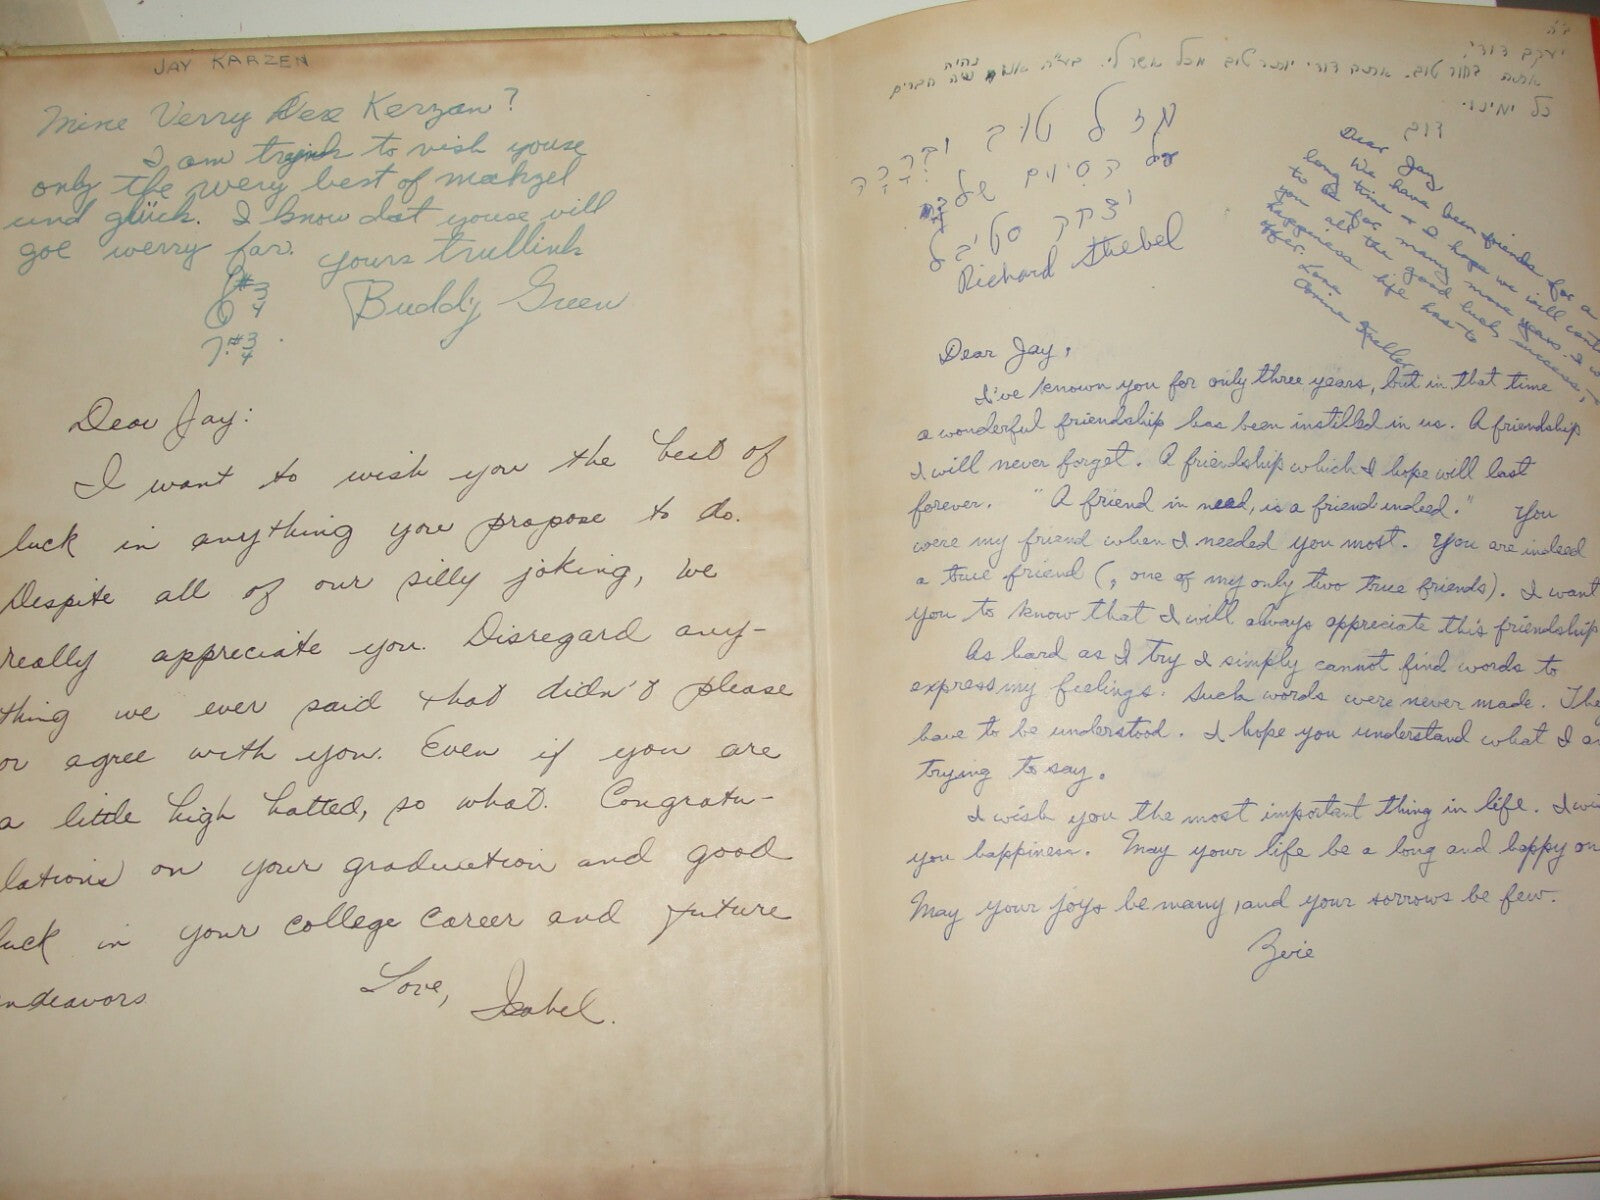 JAY KARZEN
Mine Verry Dex Kerzan?
I am trynk to vish youse
only the wery best of mahzel
und glück. I know dat youse vill
goe werry far. yours trullink
Buddy Green
6 #3/4
7 #3/4
Dear Jay:
I want to wish you the best of
luck in anything you propose to do.
Despite all of our silly joking, we
really appreciate you. Disregard any-
thing we ever said that didn't please
or agree with you. Even if you are
a little high hatted, so what. Congratu-
lations on your graduation and good
luck in your college career and future
endeavors
Love,
Isabel.
ב"ה
יעקב דודי:
אתה בחור טוב. אתה דודי יותר טוב מכל אשר לי. בע"ה נהיה חברים
כל ימינו.
דוב
מזל טוב וברכה
הסיום של
יצחק סטיבל
Richard Stiebel
Dear Jay
We have been friends for a
long time & I hope we will
to be for many more years. I
you all the good luck, success,
happiness life has to
offer. Love
Dear Jay,
I've known you for only three years, but in that time
a wonderful friendship has been instilled in us. A friendship
I will never forget. A friendship which I hope will last
forever. "A friend in need, is a friend indeed." You
were my friend when I needed you most. You are indeed
a true friend (, one of my only two true friends). I want
you to know that I will always appreciate this friendship
As hard as I try I simply cannot find words to
express my feelings: Such words were never made. The
have to be understood. I hope you understand what I a
trying to say.
I wish you the most important thing in life. I wi
you happiness. May your life be a long and happy on
May your joys be many, and your sorrows be few.
Zvie